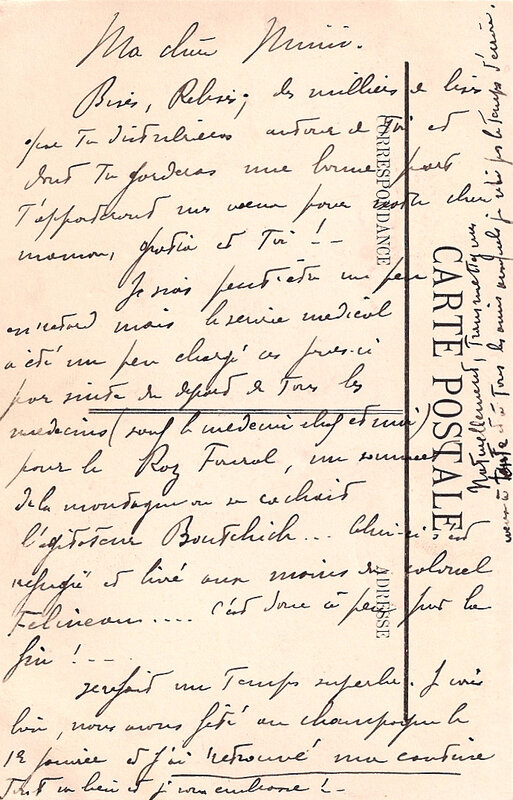 Ma chère Mimi.
Bises, Rebises, des milliers de bises
que Tu distribueras autour de Toi et
dont Tu garderas une bonne part
T'apporteront mes vœux pour notre chère
maman, et Toi !-
Je suis peut être un peu
en retard mais le service médical
a été un peu chargé ces jours-ci
par suite du départ de Tous les
médecins (sauf le médecin chef et moi)
pour le Roz Foural, un sommet
de la montagne ou se cachait
l'agitateur Boutchich... Celui-ci s'est
refugié et livré aux mains du colonel
.... c'est donc à peu près la
fin !-..
Il fait un Temps superbe. Je vais
bien, nous avons fêté au champagne le
1er Janvier et j'ai retrouvé ma
Tout va bien et je vous embrasse !-
CORRESPONDANCE
CARTE POSTALE
ADRESSE
Naturellement, Transmettez mes
vœux à Tante et à Tous les amis auxquels je n'ai pas le temps d'écrire.